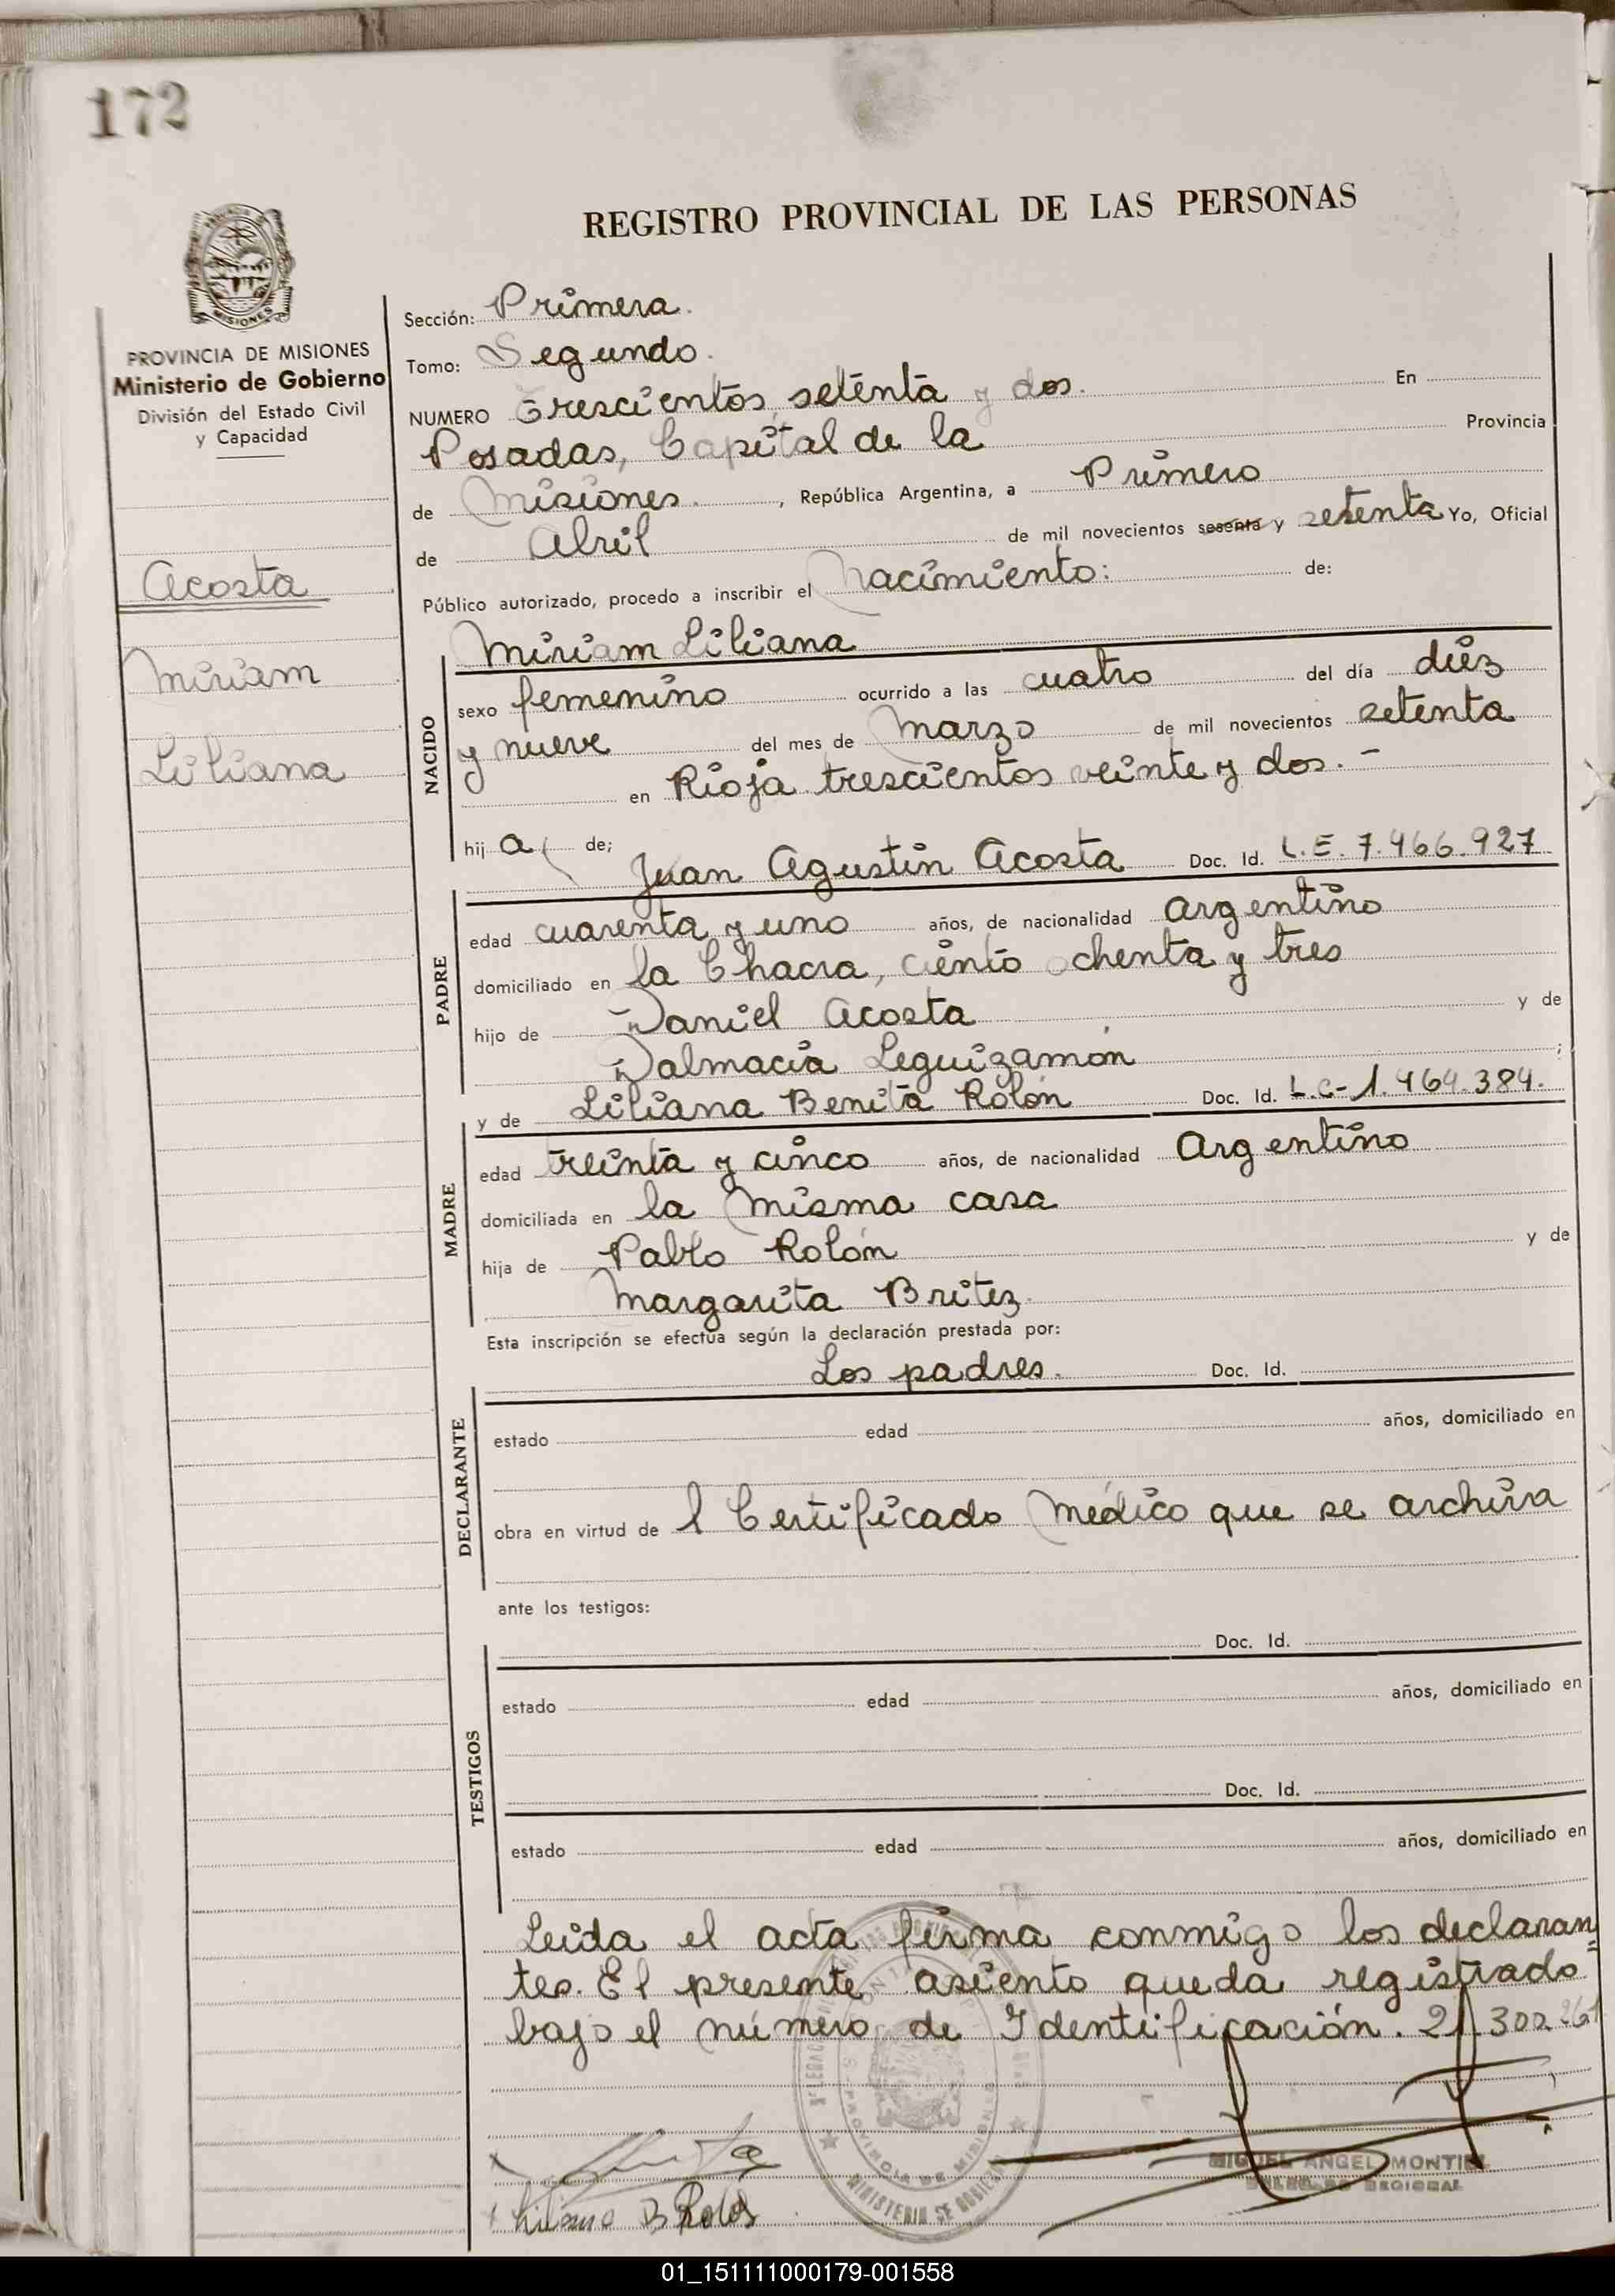 172
REGISTRO PROVINCIAL DE LAS PERSONAS
MISIONES
PROVINCIA DE MISIONES
Ministerio de Gobierno
División del Estado Civil
y Capacidad
Acosta
Miriam
Liliana
Sección: Primera.
Tomo: Segundo.
NUMERO Trescientos setenta y dos. En
Posadas, Capital de la Provincia
de Misiones. , República Argentina, a Primero
de Abril de mil novecientos sesenta y setenta Yo, Oficial
Público autorizado, procedo a inscribir el Nacimiento: de:
NACIDO
Miriam Liliana
sexo femenino ocurrido a las cuatro del día diez
y nueve del mes de Marzo de mil novecientos setenta
en Rioja trescientos veinte y dos. -
hij a de; Juan Agustin Acosta Doc. Id. L.E. 7.466.927
PADRE
edad cuarenta y uno años, de nacionalidad Argentino
domiciliado en la Chacra, ciento ochenta y tres
hijo de Daniel Acosta y de
Dalmacia Leguizamón ;
y de Liliana Benita Rolón Doc. Id. L.C- 1.464.384.
MADRE
edad treinta y cinco años, de nacionalidad Argentino
domiciliada en la misma casa
hija de Pablo Rolón y de
Margarita Britez.
Esta inscripción se efectúa según la declaración prestada por:
Los padres. Doc. Id.
DECLARANTE
estado edad años, domiciliado en
obra en virtud de l Certificado Médico que se archiva
ante los testigos:
Doc. Id.
TESTIGOS
estado edad años, domiciliado en
Doc. Id.
estado edad años, domiciliado en
Leida el acta firma conmigo los declaran
tes. El presente asiento queda registrado
bajo el número de Identificación. 21.302.261
PROVINCIA DE MISIONES
MINISTERIO DE GOBIERNO
MIGUEL ANGEL MONTIEL
Liliana B Rolon
01_151111000179-001558